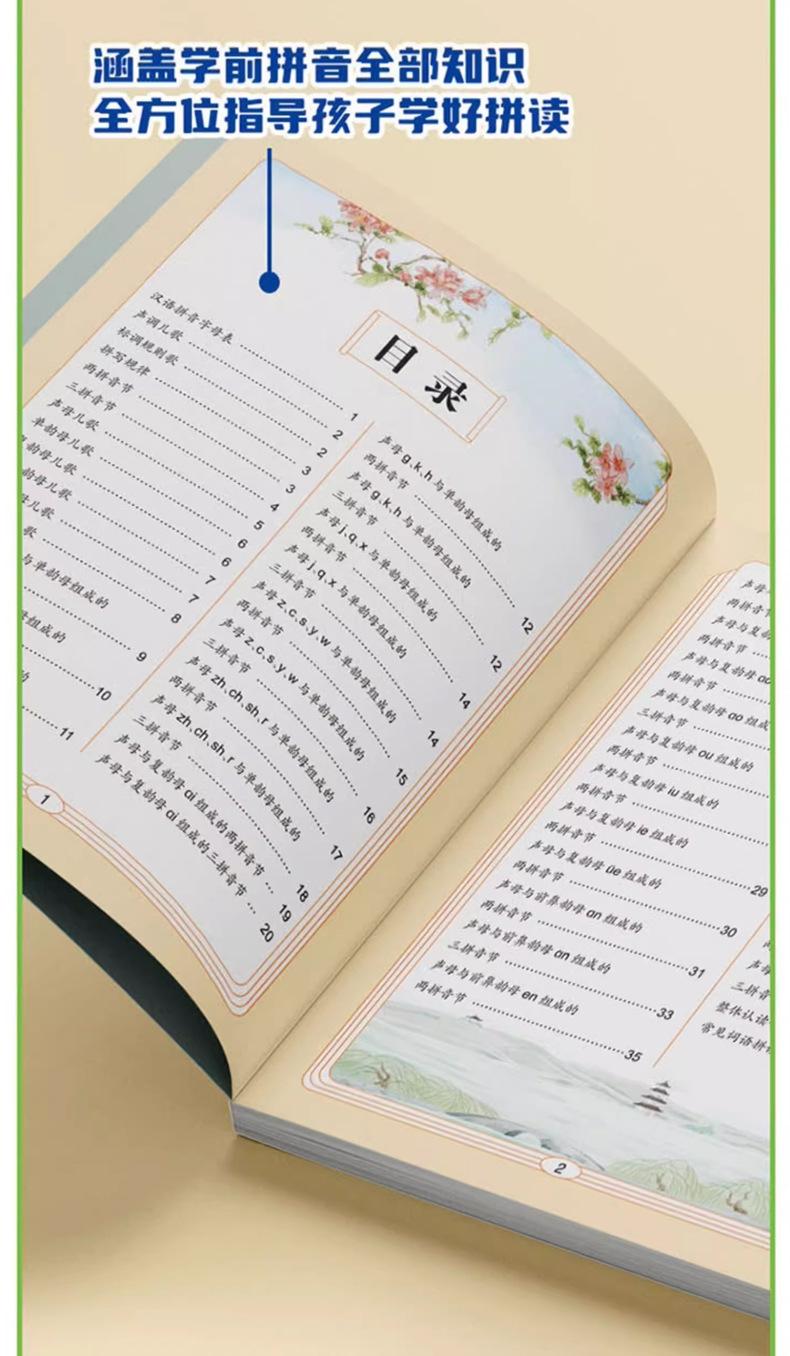 涵盖学前拼音全部知识
全方位指导孩子学好拼读
目录
汉语拼音字母表 1
声调儿歌 2
标调规则歌 2
拼写规律 3
两拼音节 3
三拼音节 4
声母儿歌 5
单韵母儿歌 6
韵母儿歌 6
韵母儿歌 7
母儿歌 7
歌 8
与单韵母组成的
9
母组成的
10
的
11
声母g、k、h与单韵母组成的
两拼音节 12
声母g、k、h与单韵母组成的
三拼音节 12
声母j、q、x与单韵母组成的
两拼音节 14
声母j、q、x与单韵母组成的
三拼音节 14
声母z、c、s、y、w与单韵母组成的
两拼音节 15
声母z、c、s、y、w与单韵母组成的
三拼音节 16
声母zh、ch、sh、r与单韵母组成的
两拼音节 17
声母zh、ch、sh、r与单韵母组成的
三拼音节 18
声母与复韵母ai组成的两拼音节 19
声母与复韵母ai组成的三拼音节 20
1
声母
两拼音节
声母与复韵
两拼音节
声母与复韵母ao
两拼音节
声母与复韵母ao组成
三拼音节
声母与复韵母ou组成的
两拼音节
声母与复韵母iu组成的
两拼音节 29
声母与复韵母ie组成的
两拼音节 30
声母与复韵母üe组成的
两拼音节 31
声母与前鼻韵母an组成的
两拼音节 33
声母与前鼻韵母an组成的
三拼音节 33
声母与前鼻韵母en组成的
两拼音节 35
两
声母
三拼音
整体认读
常见词语拼
2